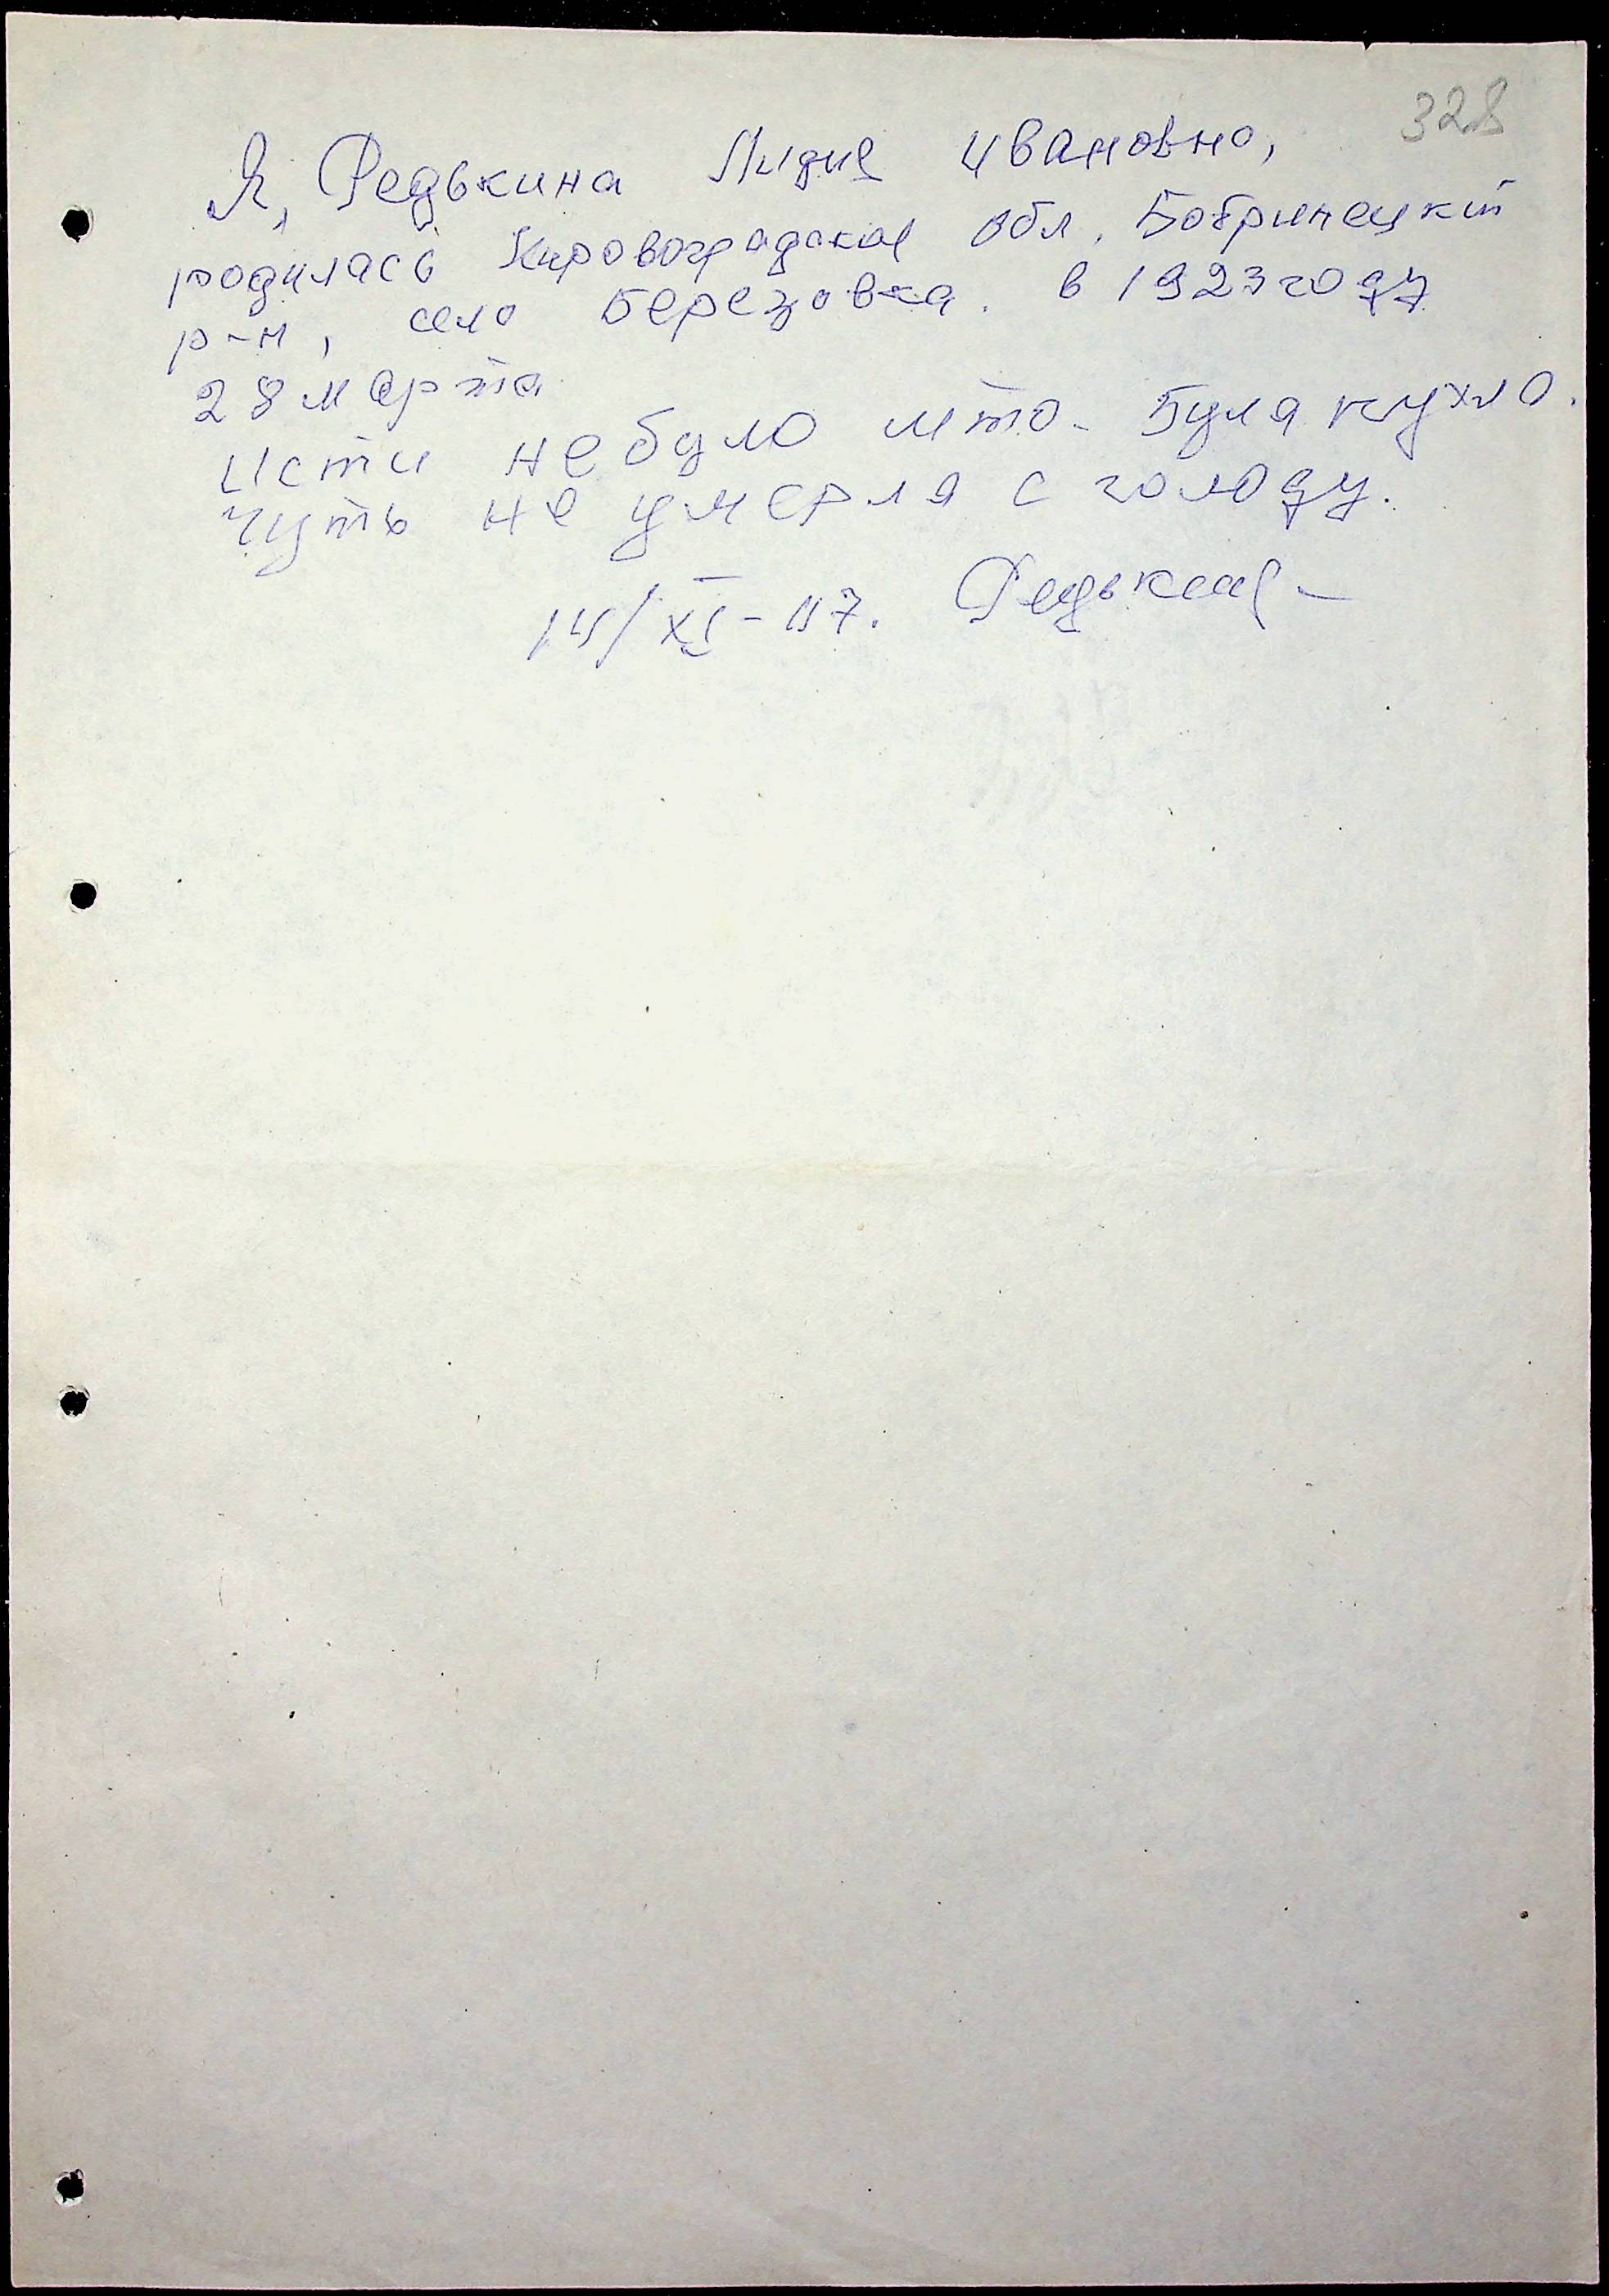 328
Я, Редькина Лидия Ивановна,
родилась Кировоградская обл, Бобринецкий
р-н, село Березовка. в 1923 году
28 марта
Исти не було што. Була пухла.
Чуть не умерла с голоду.
14/XI-07. Редькина